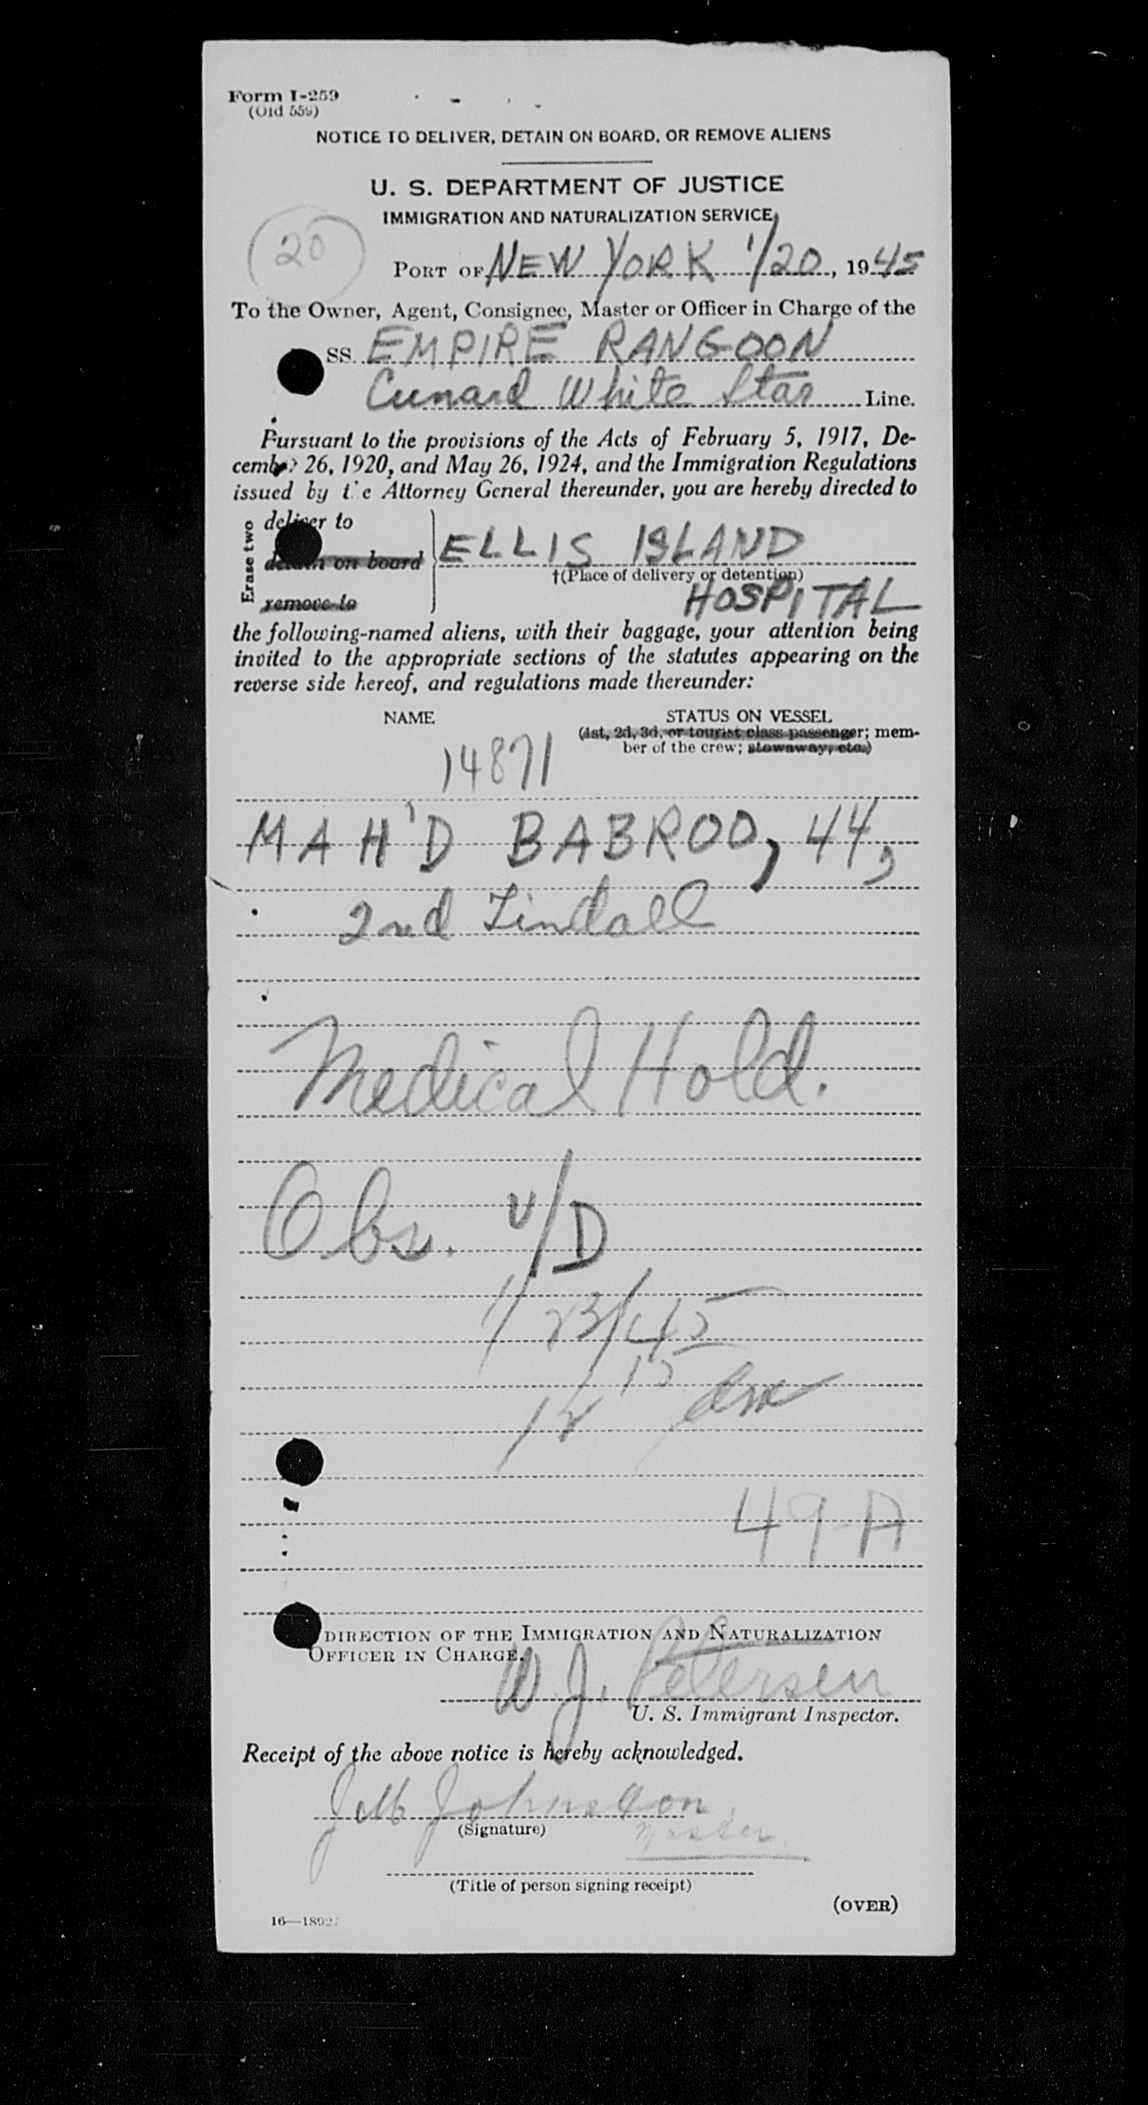 Form I-259
(Old 559)
NOTICE TO DELIVER, DETAIN ON BOARD, OR REMOVE ALIENS
U. S. DEPARTMENT OF JUSTICE
IMMIGRATION AND NATURALIZATION SERVICE
20
PORT OF NEW YORK 1/20, 1945
To the Owner, Agent, Consignee, Master or Officer in Charge of the
SS. EMPIRE RANGOON
Cunard White Star Line.
Pursuant to the provisions of the Acts of February 5, 1917, De-
cember 26, 1920, and May 26, 1924, and the Immigration Regulations
issued by the Attorney General thereunder, you are hereby directed to
Erase two
deliver to
detain on board
remove to
ELLIS ISLAND
†(Place of delivery or detention)
HOSPITAL
the following-named aliens, with their baggage, your attention being
invited to the appropriate sections of the statutes appearing on the
reverse side hereof, and regulations made thereunder:
NAME
STATUS ON VESSEL
(1st, 2d, 3d, or tourist class passenger; mem-
ber of the crew; stowaway, etc.)
14871
MAH'D BABROO, 44,
2nd Tindall
Medical Hold.
Obs. V/D
1/23/45
12 15
49-A
DIRECTION OF THE IMMIGRATION AND NATURALIZATION
OFFICER IN CHARGE.
W. J. Petersen
U. S. Immigrant Inspector.
Receipt of the above notice is hereby acknowledged.
Johnston
(Signature)
Master
(Title of person signing receipt)
(OVER)
16—18927